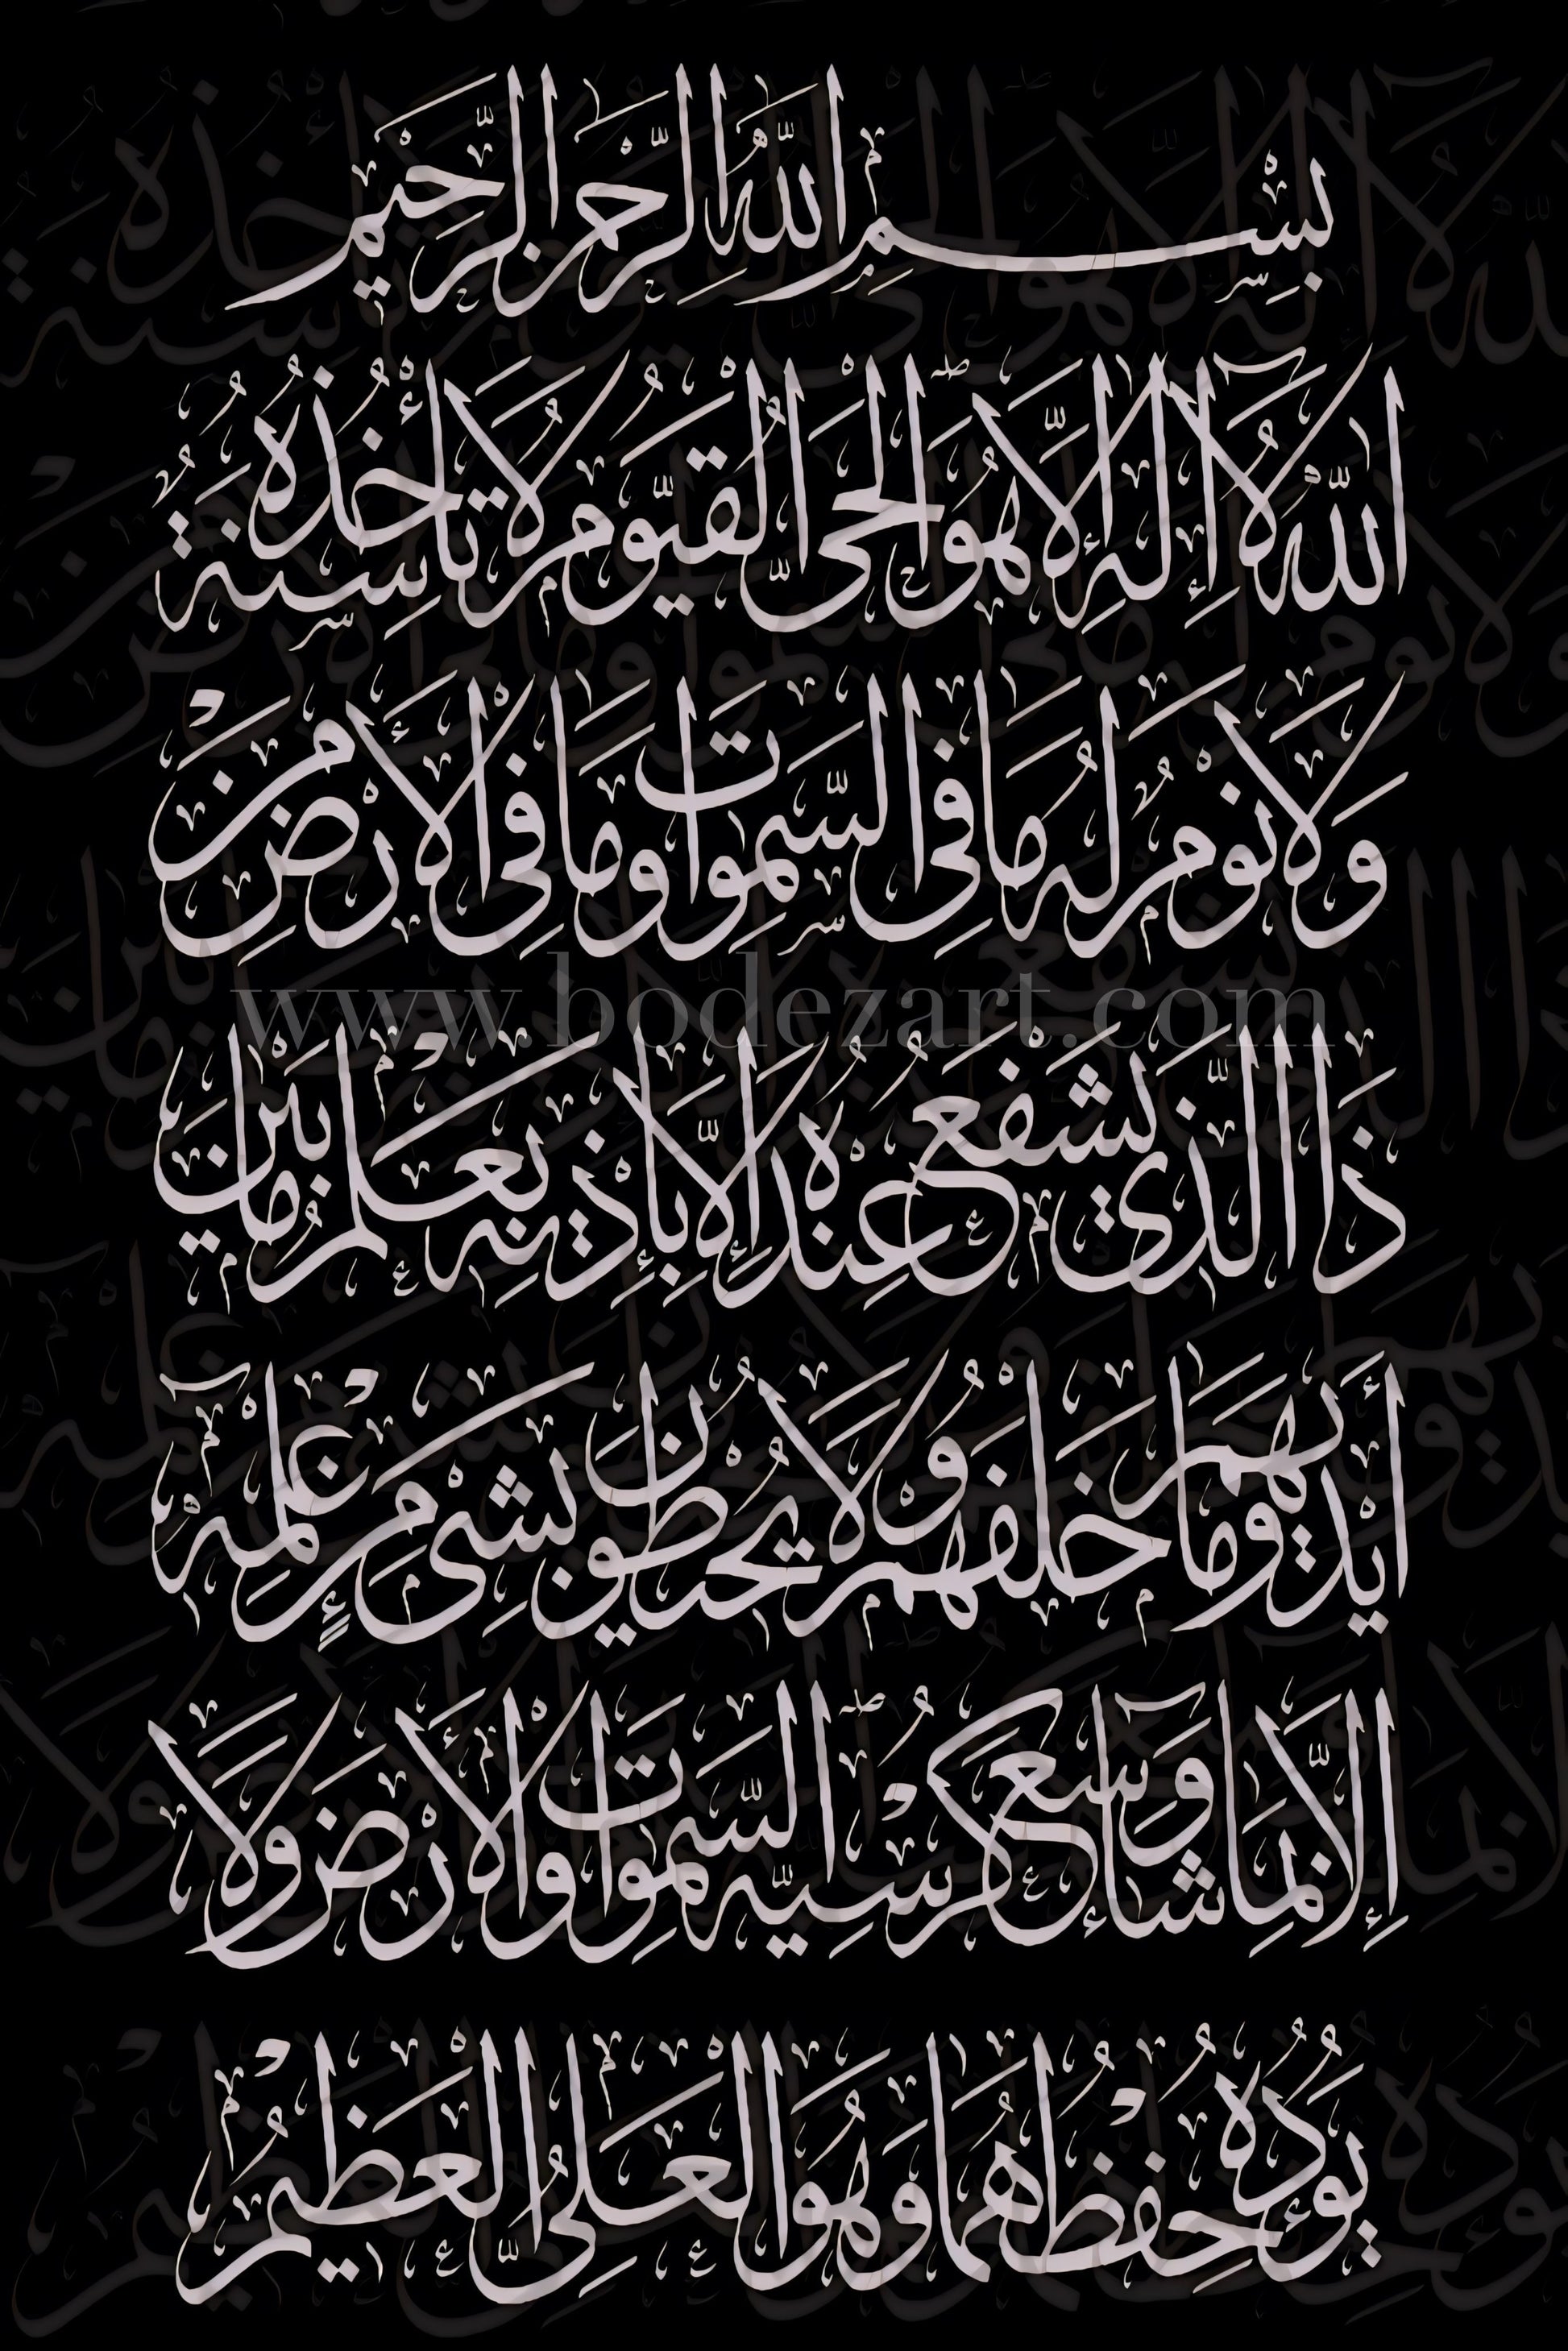 بِسْمِ اللَّهِ الرَّحْمٰنِ الرَّحِيمِ
اللّٰهُ لَا إِلٰهَ إِلَّا هُوَ الْحَيُّ الْقَيُّومُ لَا تَأْخُذُهُ سِنَةٌ
وَلَا نَوْمٌ لَهُ مَا فِي السَّمٰوَاتِ وَمَا فِي الْأَرْضِ مَنْ
www.bodezart.com
ذَا الَّذِي يَشْفَعُ عِنْدَهُ إِلَّا بِإِذْنِهِ يَعْلَمُ مَا بَيْنَ
أَيْدِيهِمْ وَمَا خَلْفَهُمْ وَلَا يُحِيطُونَ بِشَيْءٍ مِنْ عِلْمِهِ
إِلَّا بِمَا شَاءَ وَسِعَ كُرْسِيُّهُ السَّمٰوَاتِ وَالْأَرْضَ وَلَا
يَؤُدُهُ حِفْظُهُمَا وَهُوَ الْعَلِيُّ الْعَظِيمُ